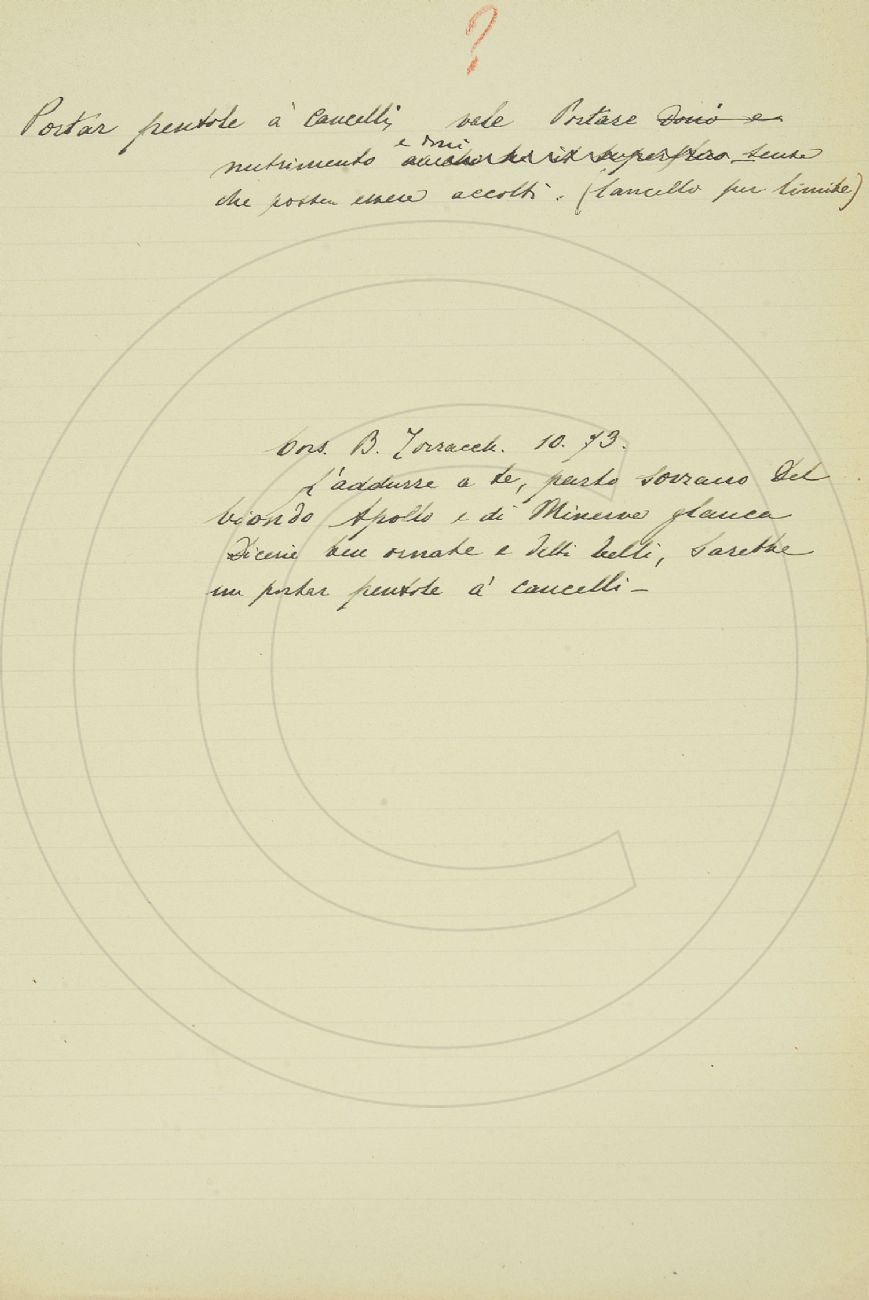 ?
Portar pentole a' Cancelli, vale Portare Doni e
e doni
nutrimento senza
che possan essere accolti. (Cancello per limite)
Cors. B. Torracch. 10. 73.
L'addurre a te, parto sovrano Del
biondo Apollo e di Minerva glauca
Dicerie ben ornate e detti belli, sarebbe
un portar pentole a' cancelli –